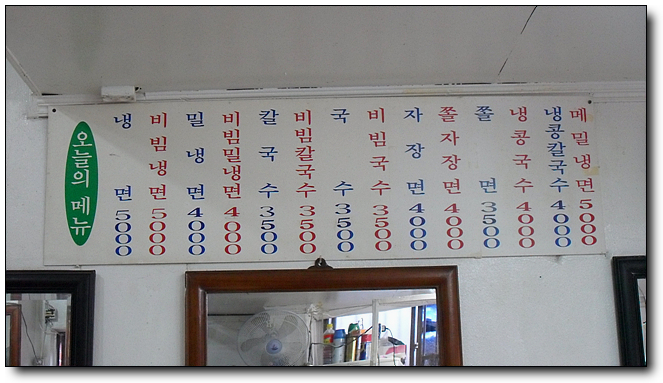 오늘의 메뉴
냉면 5000
비빔냉면 5000
밀냉면 4000
비빔밀냉면 4000
칼국수 3500
비빔칼국수 3500
국수 3500
비빔국수 3500
자장면 4000
쫄자장면 4000
쫄면 3500
냉콩국수 4000
냉콩칼국수 4000
메밀냉면 5000